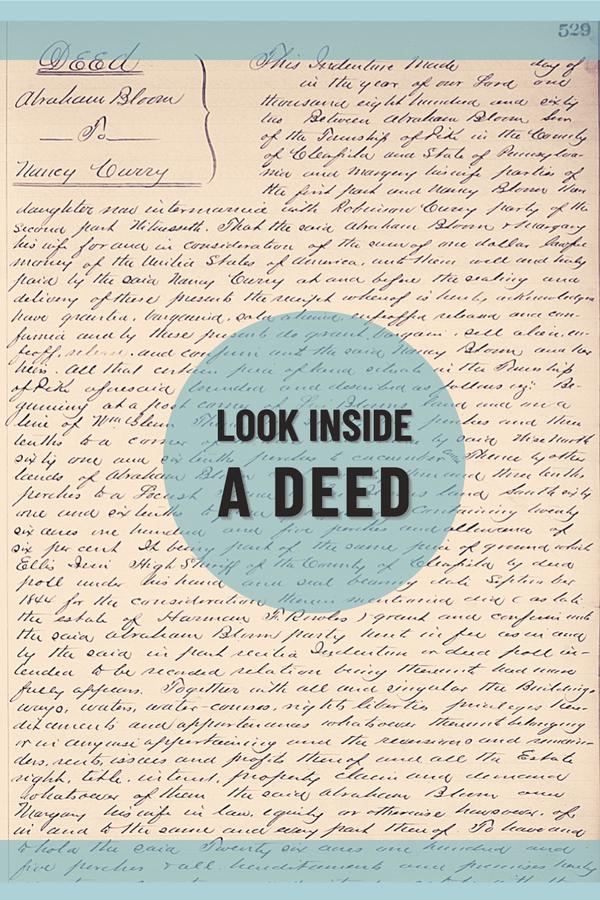 529
DEED
Abraham Bloom
To
Nancy Curry
This Indenture Made day of
in the year of our Lord one
thousand eight hundred and sixty
two Between Abraham Bloom Sen
of the Township of Pike in the County
of Clearfield and State of Pennsylva-
nia and Margary his wife parties of
the first part and Nancy Bloom
daughter now intermarried with Robinson Curry party of the
Second part Witnesseth. That the said Abraham Bloom & Margary
his wife for and in consideration of the sum of one dollar lawful
money of the United States of America, unto them well and truly
paid by the said Nancy Curry at and before the sealing and
delivery of these presents the receipt whereof is hereby acknowledged
have granted, bargained, sold aliened enfeoffed released and con-
firmed and by these presents do grant, bargain, sell alien, en-
feoff, release, and confirm unto the said Nancy Bloom and her
heirs. All that certain piece of land situate in the Township
of Pike aforesaid bounded and described as follows Be-
ginning at a post corner of Bloom's land and in a
line of Wm perches and three
tenths to a corner by said North
sixty one and six tenths perches to a cucumber Thence by other
lands of Abraham three tenths
perches to a land South sixty
one and six tenths containing twenty
six acres one hundred and five perches and allowance of
six per cent It being part of the same piece of ground which
Ellis Irwin High Sheriff of the County of Clearfield by deed
poll under his hand and seal bearing date September
1844 for the consideration therein mentioned did (as late
the estate of Harman F. Rowles) grant and confirm unto
the said Abraham Bloom party hereto in fee as in and
by the said in part recited Indenture or deed poll in-
tended to be recorded relation being thereunto had more
fully appears. Together with all and singular the Buildings
ways, waters, water-courses, rights liberties privileges here-
ditaments and appurtenances whatsoever thereunto belonging
or in anywise appertaining and the reversions and remain-
ders, rents, issues and profits thereof and all the Estate
right, title, interest, property claim and demand
whatsoever of them the said Abraham Bloom and
Margary his wife in law, equity or otherwise howsoever, of,
in and to the same and every part thereof. To have and
to hold the said Twenty six acres one hundred and
five perches & all hereditaments and premises hereby
LOOK INSIDE
A DEED